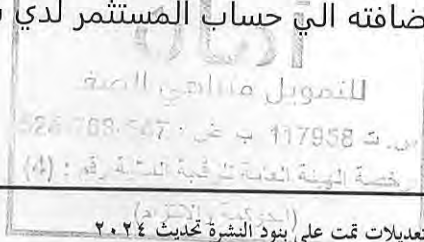 ضافته الي حساب المستثمر لدي
للتمويل متناهي الصغر
س. ت 117958 ب. ض : 526-769-547
رخصة الهيئة العامة للرقابة المالية رقم : (4)
تعديلات تمت على بنود النشرة تحديث ٢٠٢٤